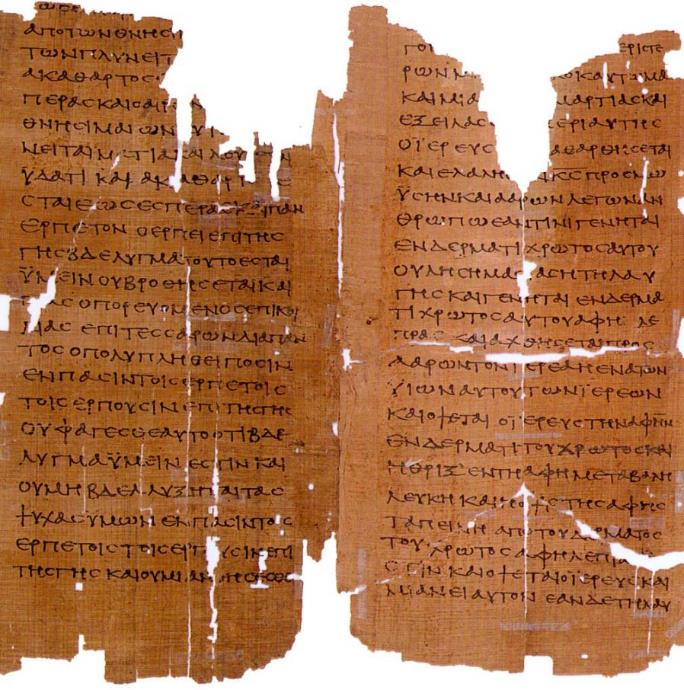 ΑΠΟΤΩΝΘΝΗΣΙ
ΤΩΝΠΛΥΝΕΙΤ
ΑΚΑΘΑΡΤΟϹ
ΠΕΡΑϹΚΑΙΟΑΙΡ
ΘΝΗϹΙΜΑΙΩΝ
ΝΕΙΤΑΙΜ ΤΙΑΚΑΙΛΟΥ
ΫΔΑΤΙ ΚΑΙ ΑΚΑΘΑΡΤ
ϹΤΑΙΕΩϹΕϹΠΕΡΑϹΚΑΙΠΑΝ
ΕΡΠΕΤΟΝ ΟΕΡΠΕΙΕΠΙΤΗϹ
ΓΗϹΒΔΕΛΥΓΜΑΤΟΥΤΟΕϹΤΑΙ
ΫΜΕΙΝΟΥΒΡΩΘΗϹΕΤΑΙΚΑΙ
ΑϹ ΟΠΟΡΕΥΟΜΕΝΟϹΕΠΙΚΟΙ
ΛΙΑϹ ΕΠΙΤΕϹϹΑΡΩΝΔΙΑΠΑΝ
ΤΟϹΟΠΟΛΥΠΛΗΘΕΙΠΟϹΙΝ
ΕΝΠΑϹΙΝΤΟΙϹΕΡΠΕΤΟΙϹ
ΤΟΙϹΕΡΠΟΥϹΙΝΕΠΙΤΗϹΓΗϹ
ΟΥΦΑΓΕϹΘΕΑΥΤΟΟΤΙΒΔΕ
ΛΥΓΜΑΫΜΕΙΝΕϹΤΙΝΚΑΙ
ΟΥΜΗΒΔΕΛΥΞΗΤΑΙΤΑϹ
ΨΥΧΑϹΥΜΩΝΕΝΠΑϹΙΝΤΟΙϹ
ΕΡΠΕΤΟΙϹΤΟΙϹΕΡΠ ΥϹΙΝΕΠΙ
ΤΗϹΓΗϹ ΚΑΙΟΥΜΙΑΝ ΗϹΕϹΘΕ
ΓΟΙ ΕΡΙϹΤΕ
ΡΩΝ Ν ΚΑΥΤΩΜΑ
ΚΑΙΜΙΑ ΜΑΡΤΙΑϹΚΑΙ
ΕΞΕΙΛΑϹ ΕΡΙΑΥΤΗϹ
ΟΪΕΡΕΥϹ ΑΘΑΡΘΗϹΕΤΑΙ
ΚΑΙΕΛΑΛΗ ΚϹΠΡΟϹΜΩ
ΫϹΗΝΚΑΙΑΑΡΩΝΛΕΓΩΝΑΝ
ΘΡΩΠΩΕΑΝΤΙΝΙΓΕΝΗΤΑΙ
ΕΝΔΕΡΜΑΤΙΧΡΩΤΟϹΑΥΤΟΥ
ΟΥΛΗϹΗΜΑϹΙΑϹΗΤΗΛΑΥ
ΓΗϹ ΚΑΙΓΕΝΗΤΑΙ ΕΝΔΕΡΜΑ
ΤΙΧΡΩΤΟϹΑΥΤΟΥΑΦΗ ΛΕ
ΠΡΑϹ ΚΑΙΑΧΘΗϹΕΤΑΙΠΡΟϹ
ΑΑΡΩΝΤΟΝΪΕΡΕΑΗΕΝΑΤΩΝ
ΫΙΩΝΑΥΤΟΥΤΩΝΪΕΡΕΩΝ
ΚΑΙΟΨΕΤΑΙ ΟΪΕΡΕΥϹΤΗΝΑΦΗΝ
ΕΝΔΕΡΜΑΤΙΤΟΥΧΡΩΤΟϹΚΑΙ
ΗΘΡΙΞ ΕΝΤΗΑΦΗΜΕΤΑΒΑΛΗ
ΛΕΥΚΗ ΚΑΙΗΟΨΙϹΤΗϹΑΦΗϹ
ΤΑΠΕΙΝΗ ΑΠΟΤΟΥΔΕΡΜΑΤΟϹ
ΤΟΥ ΧΡΩΤΟϹΑΦΗΛΕΠΡΑ
ϹΤΙΝ ΚΑΙΟΨΕΤΑΙΟΪΕΡΕΥϹΚΑΙ
ΜΙΑΝΕΙΑΥΤΟΝ ΕΑΝΔΕΤΗΛΑΥ